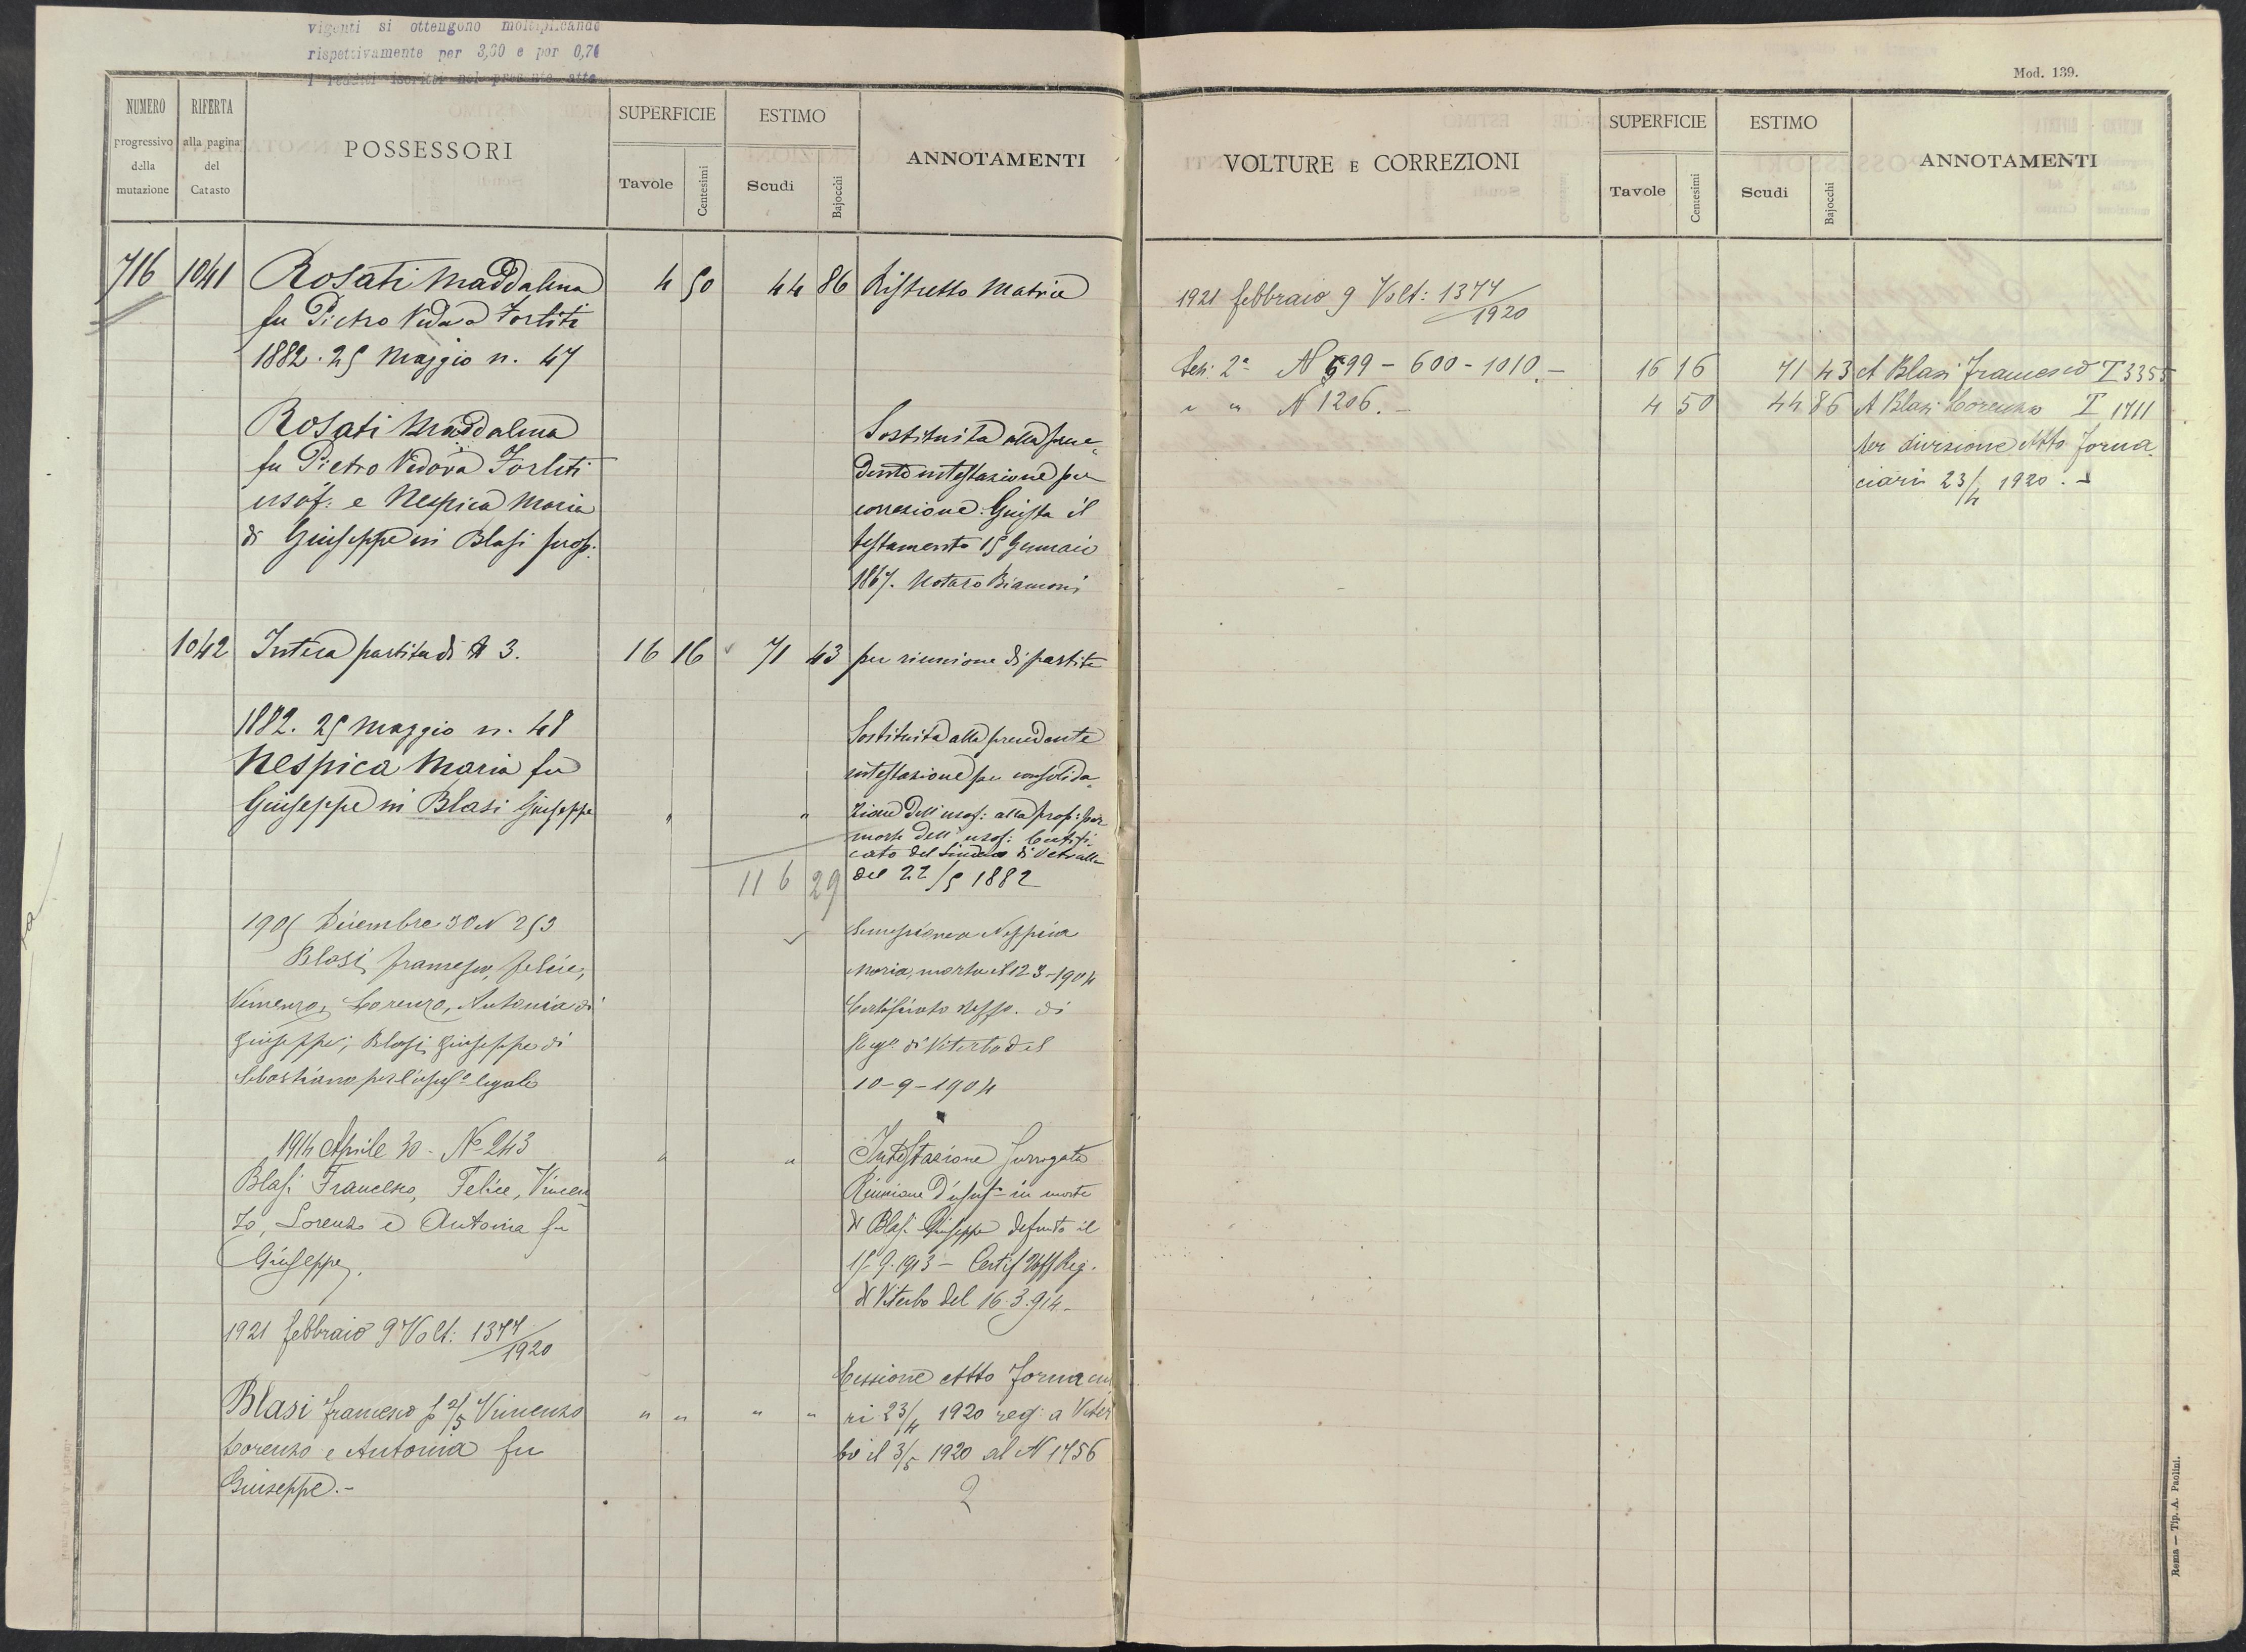 vigenti si ottengono moltiplicando
rispettivamente per 3,60 e per 0,74
i redditi iscritti nel presente atto
NUMERO
progressivo
della
mutazione
RIFERTA
alla pagina
del
Catasto
POSSESSORI
SUPERFICIE
Tavole
Centesimi
ESTIMO
Scudi
Bajocchi
ANNOTAMENTI
716 1041 Rosati Maddalena 4 50 44 86 Ristretto Matrice
fu Pietro Vedova Forliti
1882. 25 Maggio n. 47
Rosati Maddalena
fu Pietro Vedova Forliti
usof: e Nespica Maria
di Giuseppe in Blasi prop:
Sostituita alla prece-
dente intestazione per
correzione. Giusta il
testamento 15 Gennaio
1867. Notaro Biamoni
1042 Intera partita di N 3. 16 16 71 43 per riunione di partite
1882. 25 Maggio n. 48
Nespica Maria fu
Giuseppe in Blasi Giuseppe " "
Sostituita alla precedente
intestazione per consolida-
zione dell'usof: alla prop: per
morte dell'usof: Certifi-
cato del Sindaco di Vetralla
del 22/5 1882
116 29
1905 Dicembre 30 N 253
Blasi Francesco, Felice,
Vincenzo, Lorenzo, Antonia di
Giuseppe; Blasi Giuseppe di
Sebastiano per l'usuf.o legale
Successione a Nespica
Maria, morta il 12-3-1904
Certificato Uff. di
Reg. di Viterbo del
10-9-1904
1914 Aprile 30 - No 243
Blasi Francesco, Felice, Vincen
zo, Lorenzo e Antonia fu
Giuseppe.
" "
Intestazione surrogata
Riunione d'usuf. in morte
di Blasi Giuseppe defunto il
15-9-1913 - Certif Uff Reg.
di Viterbo del 16.3.914-
1921 febbraio 9 Volt: 1377/1920
Blasi Francesco p 2/5 Vincenzo " " " "
Lorenzo e Antonia fu
Giuseppe.-
Cessione Atto Fornacia
ri 23/4 1920 reg: a Viter
bo il 3/5 1920 al N 1756
2
Mod. 139.
VOLTURE E CORREZIONI
SUPERFICIE
Tavole
Centesimi
ESTIMO
Scudi
Bajocchi
ANNOTAMENTI
1921 febbraio 9 Volt: 1377/1920
Sez: 2a N 599 - 600 - 1010.- 16 16 71 43 A Blasi Francesco T 3355
" " N 1206.- 4 50 44 86 A Blasi Lorenzo T 1711
per divisione Atto Forna
ciari 23/4 1920.-
Roma — Tip. A. Paolini.